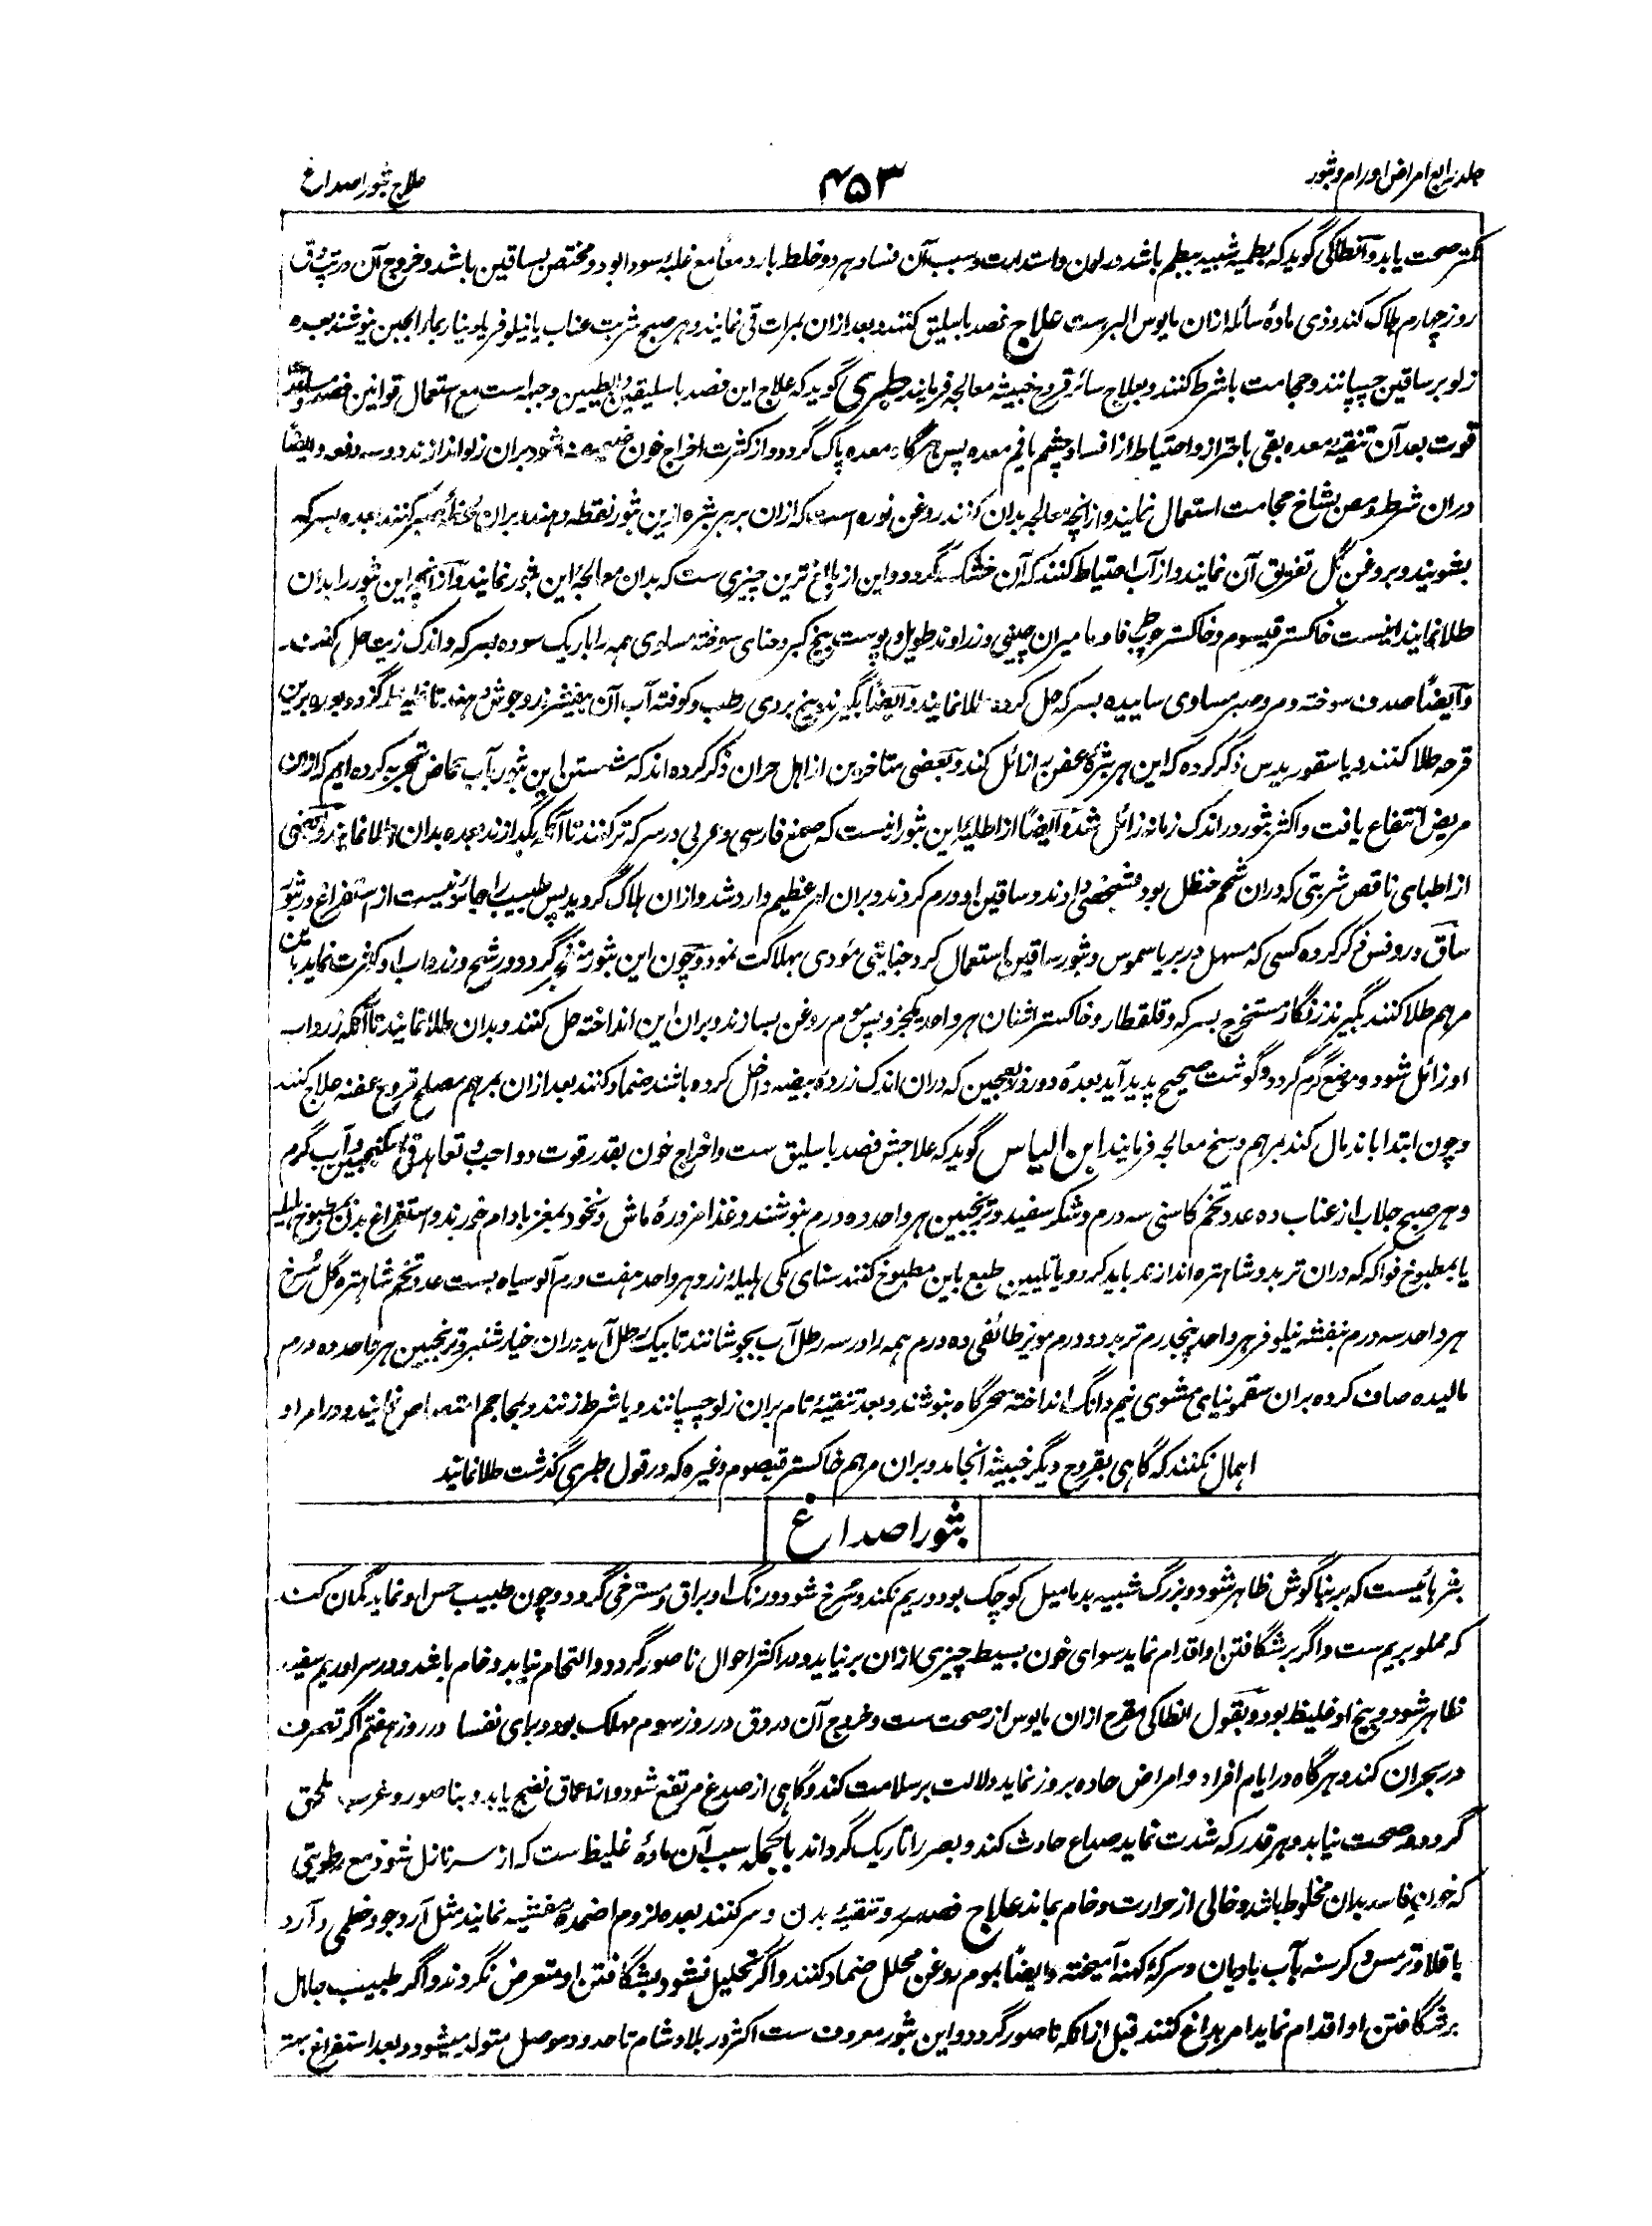 جلد رابع امراض اورام و بثور
۴۵۳
علاج بثور اصداغ
کمتر صحت یابد و انطاکی گوید که بطمیه شبیه ببطم باشد در لون و استدارت و سبب آن فساد هر دو خلط بارد معًا مع غلبهٔ سودا بود و مختص بساقین باشد و خروج آن در تپ دق
روز چهارم هلاک کند و ذی مادهٔ سائله ازان مایوس البرء ست علاج فصد باسلیق کنند و بعد ازان بمرات قی نمایند و هر صبح شربت عناب یا نیلوفر یا دینار بماء الجبن بنوشند بعده
زلو بر ساقین چسپانند و حجامت با شرط کنند و بعلاج سائر قروح خبیثه معالجه فرمایند طبری گوید که علاج این فصد باسلیقین و ابطیین وجبه است مع استعمال قوانین فصد و مساعدت
قوت بعد آن تنقیه معده بقی باحتراز و احتیاط از افساد چشم یا فم معده پس هرگاه معده پاک گردد و از کثرت اخراج خون ضعیف نشود بران زلو اندازند دو سه دفعه و ایضًا
دران شرط و مص بشاخ حجامت استعمال نمایند و ازانچه معالجه بدان کنند روغن نوره است که ازان بر هر بثره ازین بثور نقطه دهند و بران صبر کنند بعده بسرکه
بشویند و بروغن گل تغریق آن نمایند و از آب احتیاط کنند که آن خشک گردد و این از بالغ ترین چیزی ست که بدان معالجهٔ این بثور نمایند و ازانچه این بثور را بدان
طلا نمایند اینست خاکستر قیسوم و خاکستر چوب فاد ما میران چینی و زراوند طویل و پوست بیخ کبر و حنای سوخته مساوی همه را باریک سوده بسرکه و اندک زیت حل کنند
و ایضًا صدف سوخته و مر و صبر مساوی ساییده بسرکه حل کرده طلا نمایند و ایضًا بگیرند بیخ بردی رطب و کوفته آب آن بیفشرند و جوش دهند تا غلیظ گردد و بوره برین
قرحه طلا کنند و دیاسقوریدس ذکر کرده که این هر بثرهٔ عفن را زائل کند و بعضی متاخرین از اهل حران ذکر کرده اند که شستن این بثور بآب حماض تجربه کرده ایم که ازان
مریض انتفاع یافت و اکثر بثور در اندک زمانه زائل شد و ایضًا از اطلیهٔ این بثور اینست که صمغ فارسی و عربی در سرکه تر کنند تا آنکه بگدازند بعده بدان طلا نمایند و بعضی
از اطبای ناقص شربتی که دران شحم حنظل بود بشخصی دادند و ساقین او ورم کردند و بران امر عظیم وارد شد و ازان هلاک گردید پس طبیب را جائز نیست از استفراغ در بثور
ساق و روفس ذکر کرده کسی که مسهل در بریاسموس و بثور ساقین استعمال کرد جنایتی مؤدی بهلاکت نمود و چون این بثور منفجر گردد و رشح و زرداب او کثرت نماید باین
مرهم طلا کنند بگیرند زنگار مستخرج بسرکه و قلقطار و خاکستر اشنان هر واحد یکجزو پس موم روغن بسازند و بران این انداخته حل کنند و بدان طلا نمایند تا آنکه زرداب
او زائل شود و موضع گرم گردد و گوشت صحیح پدید آید بعده دو روز بعجین که دران اندک زردهٔ بیضه داخل کرده باشند ضماد کنند بعد ازان بمرهم مصلح قروح عفنه علاج کنند
و چون ابتدا باندمال کند بمرهم وسخ معالجه فرمایند ابن الیاس گوید که علاجش فصد باسلیق ست و اخراج خون بقدر قوت دو واجب و تعاهد قی بسکنجبین و آب گرم
و هر صبح جلاب از عناب ده عدد تخم کاسنی سه درم و شکر سفید و ترنجبین هر واحد ده درم بنوشند و غذا مزورهٔ ماش و نخود بمغز بادام خورند و استفراغ بدن بمطبوخ هلیله
یا بمطبوخ فواکه که دران تربد و شاهتره اندازند باید کرد و یا تلیین طبع باین مطبوخ کنند سنای مکی هلیلهٔ زرد هر واحد هفت درم آلو سیاه بست عدد تخم شاهتره گل سرخ
هر واحد سه درم بنفشه نیلوفر هر واحد پنجدرم تربد دو درم مویز طائفی ده درم همه را در سه رطل آب بجوشانند تا بیک رطل آید دران خیار شنبر و ترنجبین هر واحد ده درم
مالیده صاف کرده بران سقمونیای مشوی نیم دانگ انداخته سحرگاه بنوشند و بعد تنقیهٔ تام بران زلو چسپانند و یا شرط زنند و بمحاجم امتصاص نمایند و در امر او
اهمال نکنند که گاهی بقروح دیگر خبیثه انجامد و بران مرهم خاکستر قیصوم و غیره که در قول طبری گذشت طلا نمایند
بثور اصداغ
بثرهائیست که بر بناگوش ظاهر شود و بزرگ شبیه بدمامیل کوچک بود و ریم نکند و سرخ شود و رنگ او براق و مسترخی گردد و چون طبیب حس او نماید گمان کند
که مملو بریم ست و اگر بر شگافتن او اقدام نماید سوای خون بسیط چیزی ازان بر نیاید و در اکثر احوال ناصور گردد و التحام نیابد و خام باشد و در سر او ریم سفید
ظاهر شود و بیخ او غلیظ بود و بقول انطاکی مقرح ازان مایوس از صحت ست و خروج آن در دق در روز سوم مهلک بود و برای نفسا در روز هفتم اگر تصرف
در بحران کند و هرگاه در ایام افراد و امراض حاده بروز نماید دلالت بر سلامت کند و گاهی از صدغ مرتفع شود و از اعماق نضج یابد و بناصور و غرب ملحق
گردد و صحت نیابد و هر قدر که شدت نماید صداع حادث کند و بصر را تاریک گرداند بالجمله سبب آن مادهٔ غلیظ ست که از سر نازل شود مع رطوبتی
که خون فاسد بدان مخلوط باشد و خالی از حرارت و خام بماند علاج فصد و تنقیهٔ بدن و سر کنند بعده ملزوم اضمدهٔ مفشیه نمایند مثل آرد جو و خطمی و آرد
باقلا و ترمس و کرسنه بآب بادیان و سرکهٔ کهنه آمیخته و ایضًا بموم روغن محلل ضماد کنند و اگر تحلیل نشود بشگافتن او متعرض نگردند و اگر طبیب جاهل
بر شگافتن او اقدام نماید امر بداغ کنند قبل ازانکه ناصور گردد و این بثور معروف ست اکثر در بلاد شام تا حدود موصل متولد میشود و بعد استفراغ بهتر